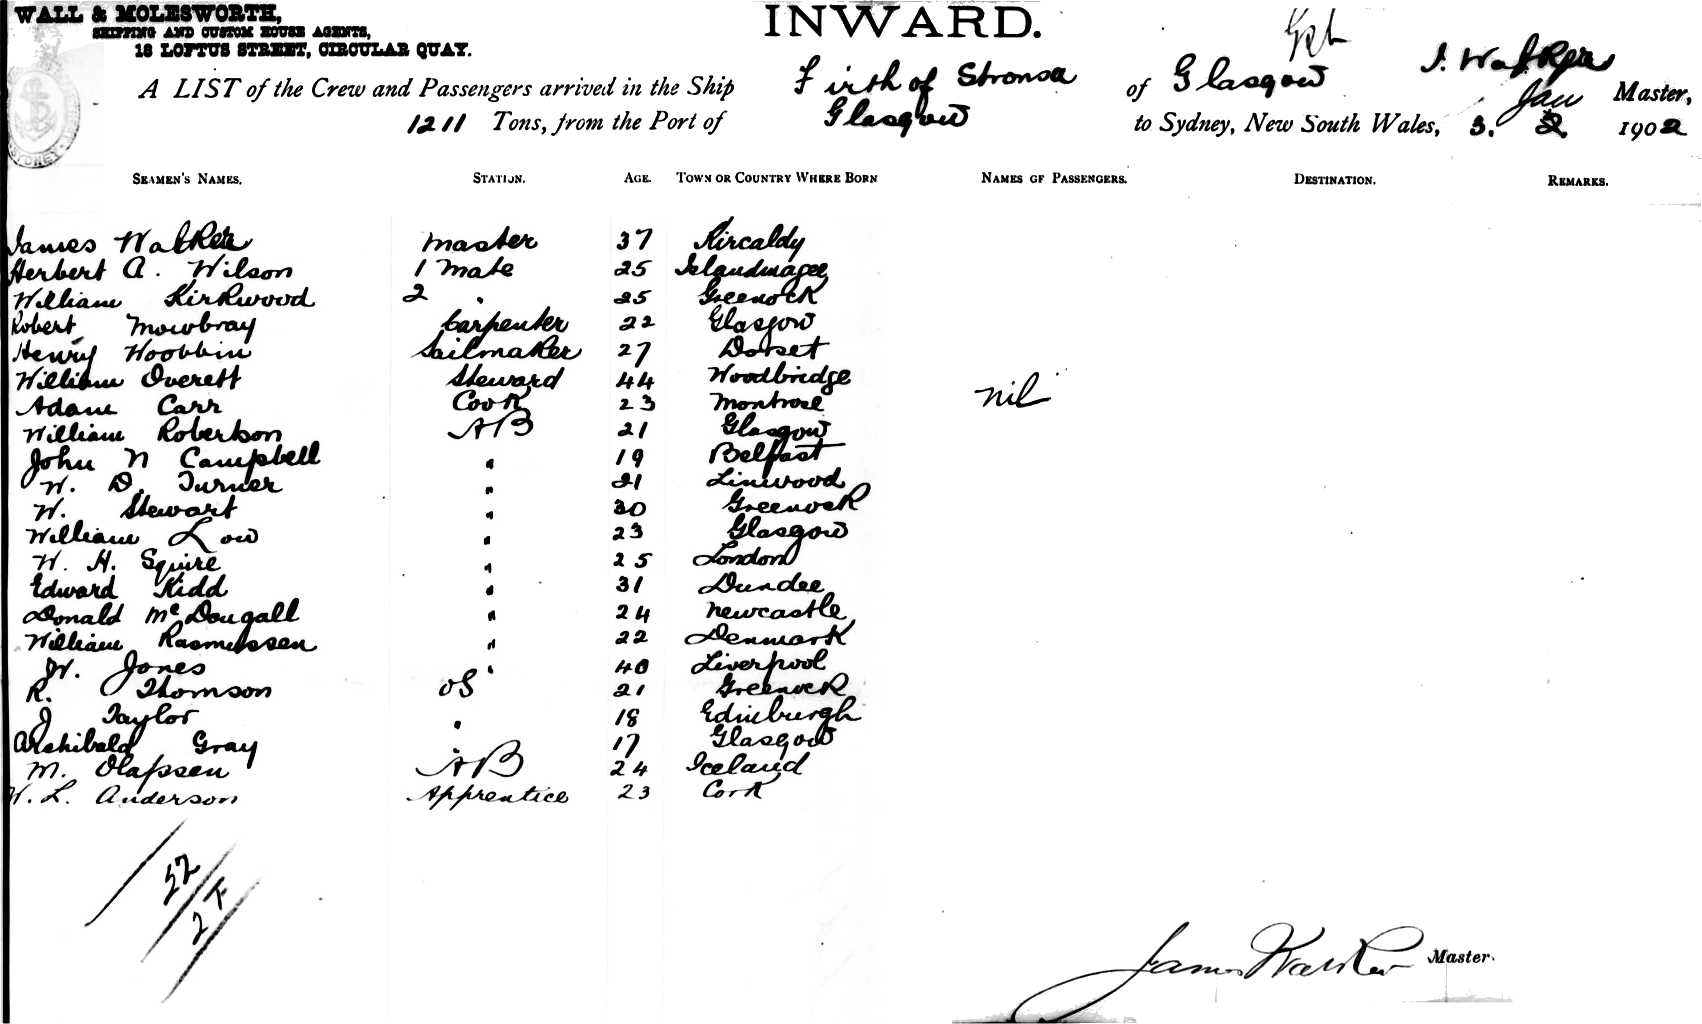 WALL & MOLESWORTH,
SHIPPING AND CUSTOM HOUSE AGENTS,
18 LOFTUS STREET, CIRCULAR QUAY.
INWARD.
A LIST of the Crew and Passengers arrived in the Ship Firth of Stronsa of Glasgow J. Walker Master,
1211 Tons, from the Port of Glasgow to Sydney, New South Wales, 3. Jan 1902
SYDNEY
SEAMEN'S NAMES. STATION. AGE. TOWN OR COUNTRY WHERE BORN NAMES OF PASSENGERS. DESTINATION. REMARKS.
James Walker master 37 Kircaldy
Herbert A. Wilson 1 Mate 25 Islandmagee
William Kirkwood 2 " 25 Greenock
Robert Mowbray Carpenter 22 Glasgow
Henry Woobbin Sailmaker 27 Dorset
William Overett Steward 44 Woodbridge
Adam Carr Cook 23 Montrose nil
William Robertson AB 21 Glasgow
John N Campbell " 19 Belfast
W. D. Turner " 21 Linwood
W. Stewart " 30 Greenock
William Low " 23 Glasgow
W. H. Squire " 25 London
Edward Kidd " 31 Dundee
Donald McDougall " 24 Newcastle
William Rasmussen " 22 Denmark
W. Jones " 40 Liverpool
R. Thomson OS 21 Greenock
J Taylor " 18 Edinburgh
Archibald Gray " 17 Glasgow
M. Olafsen AB 24 Iceland
W. L. Anderson Apprentice 23 Cork
22
2 F
James Walker Master.